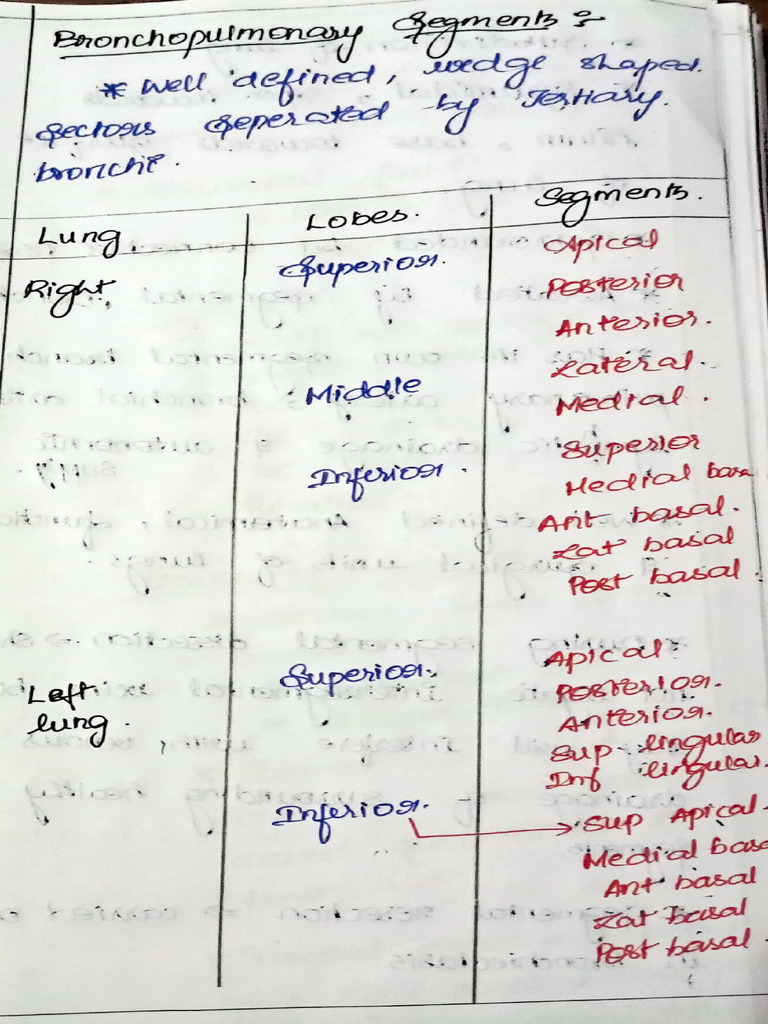 Bronchopulmonary Segments :-
* Well defined, wedge shaped.
Sectors seperated by Tertiary.
bronchi.
Lung Lobes. Segments.
Right, Superior. Apical
Posterior
Anterior.
Lateral.
Middle Medial.
Superior
Inferior. Medial basa
Ant basal.
Lat basal
Post basal.
Left Superior. Apical
lung. Posterior.
Anterior.
Sup-lingular
Inf lingular.
Inferior. → Sup Apical.
Medial basa
Ant basal
Lat basal
Post basal.